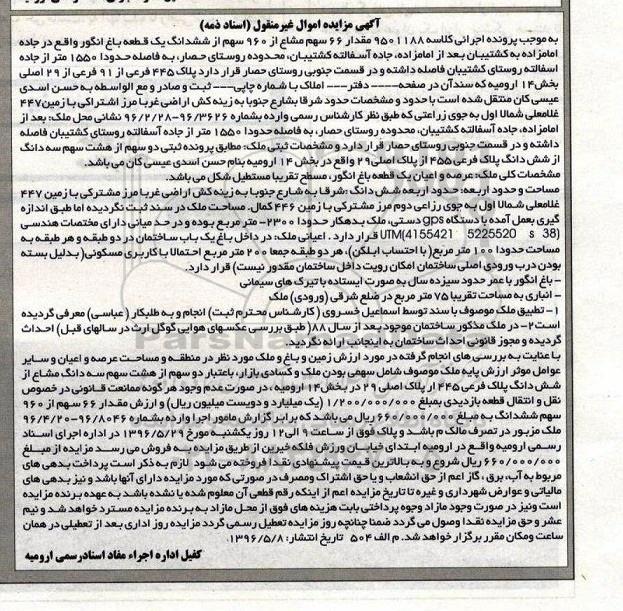 آگهی مزایده اموال غیرمنقول (اسناد ذمه)
به موجب پرونده اجرائی کلاسه ۹۵۰۱۱۸۸ مقدار ۶۶ سهم مشاع از ۹۶۰ سهم از ششدانگ یک قطعه باغ انگور واقع در جاده
امامزاده به کشتیبان بعد از امامزاده، جاده آسفالته کشتیبان، محدوده روستای حصار، به فاصله حدودا ۱۵۵۰ متر از جاده
اسفالته روستای کشتیبان فاصله داشته و در قسمت جنوبی روستای حصار قرار دارد پلاک ۴۴۵ فرعی از ۹۱ فرعی از ۲۹ اصلی
بخش ۱۴ ارومیه که سند آن در صفحه---- دفتر--- املاک با شماره چاپی--- ثبت و صادر و مع الواسطه به حسن اسدی
عیسی کان منتقل شده است با حدود و مشخصات حدود شرقا بشارع جنوبا به زینه کش اراضی غربا مرز اشتراکی با زمین ۴۴۷
غلامعلی شمالا اول به جوی زراعتی که طبق نظر کارشناس رسمی وارده بشماره ۹۶/۳۶۲۶-۹۶/۲/۲۸ نشانی محل ملک: بعد از
امامزاده، جاده آسفالته کشتیبان، محدوده روستای حصار، به فاصله حدودا ۱۵۵۰ متر از جاده آسفالته روستای کشتیبان فاصله
داشته و در قسمت جنوبی روستای حصار قرار دارد و مشخصات ثبتی ملک: مطابق پرونده ثبتی دو سهم از هشت سهم سه دانگ
از شش دانگ پلاک فرعی ۴۵۵ از پلاک اصلی ۲۹ واقع در بخش ۱۴ ارومیه بنام حسن اسدی عیسی کان می باشد.
مشخصات کلی ملک: عرصه و اعیان یک قطعه باغ انگور، مسطح تقریبا مستطیل شکل می باشد.
مساحت و حدود اربعه: حدود اربعه شش دانگ :شرقا به شارع جنوبا به زینه کش اراضی غربا مرز مشترکی با زمین ۴۴۷
غلامعلی شمالا اول به جوی زراعی دوم مرز مشترکی با زمین ۴۴۶ کمال. مساحت ملک در سند ثبت نگردیده اما طبق اندازه
گیری بعمل آمده با دستگاه gps دستی، ملک بدهکار حدودا ۲۳۰۰- متر مربع بوده و در حد میانی دارای مختصات هندسی
UTM(4155421 5225520 s 38) قرار دارد. اعیانی ملک: در داخل باغ یک باب ساختمان در دو طبقه و هر طبقه به
مساحت حدودا ۱۰۰ متر مربع( با احتساب ابلکن)، هر دو طبقه جمعا ۲۰۰ متر مربع احتمالا با کاربری مسکونی( بدلیل بسته
بودن درب ورودی اصلی ساختمان امکان رویت داخل ساختمان مقدور نیست) قرار دارد.
- باغ انگور با عمر حدود سیزده سال به صورت ایستاده با تیرک های سیمانی
- انباری به مساحت تقریبا ۷۵ متر مربع در ضلع شرقی (ورودی) ملک
۱- تطبیق ملک موصوف با سند توسط اسماعیل خسروی ( کارشناس محترم ثبت) انجام و به طلبکار ( عباسی) معرفی گردیده
است ۲- در ملک مذکور ساختمان موجود بعد از سال ۸۸ ( طبق بررسی عکسهای هوایی گوگل ارث در سالهای قبل) احداث
گردیده و مجوز قانونی احداث ساختمان به اینجانب ارائه نگردید.
با عنایت به بررسی های انجام گرفته در مورد ارزش زمین و باغ و ملک مورد نظر در منطقه و مساحت عرصه و اعیان و سایر
عوامل موثر ارزش پایه ملک موصوف شامل سهمی بودن ملک و کسادی بازار، باعتبار دو سهم از هشت سهم سه دانگ مشاع از
شش دانگ پلاک فرعی ۴۴۵ از پلاک اصلی ۲۹ در بخش ۱۴ ارومیه ، در صورت عدم وجود هر گونه ممانعت قانونی در خصوص
نقل و انتقال قطعه بازدیدی بمبلغ ۱/۲۰۰/۰۰۰/۰۰۰ (یک میلیارد و دویست میلیون ریال) و ارزش مقدار ۶۶ سهم از ۹۶۰
سهم ششدانگ به مبلغ ۶۶۰/۰۰۰/۰۰۰ ریال می باشد که برابر گزارش مامور اجرا وارده بشماره ۹۶/۸۰۴۶-۹۶/۴/۲۰
ملک مزبور در تصرف مالک م باشد و پلاک فوق از ساعت ۹ الی ۱۲ روز یکشنبه مورخ ۱۳۹۶/۵/۲۹ در اداره اجرای اسناد
رسمی ارومیه واقع در ارومیه ابتدای خیابان ورزش فلکه خیبرین از طریق مزایده به فروش می رسد مزایده از مبلغ
۶۶۰/۰۰۰/۰۰۰ ریال شروع و به بالاترین قیمت پیشنهادی نقدا فروخته می شود لازم به ذکر است پرداخت بدهی های
مربوط به آب، برق ، گاز اعم از حق انشعاب و یا حق اشتراک و مصرف در صورتی که مورد مزایده دارای آنها باشد و نیز بدهی های
مالیاتی و عوارض شهرداری و غیره تا تاریخ مزایده اعم از اینکه رقم قطعی آن معلوم شده یا نشده باشد به عهده برنده مزایده
است ونیز در صورت وجود مازاد وجوه پرداختی بابت هزینه های فوق از محل مازاد به برنده مزایده مسترد خواهد شد و نیم
عشر و حق مزایده نقدا وصول می گردد ضمنا چنانچه روز مزایده تعطیل رسمی گردد مزایده روز اداری بعد از تعطیلی در همان
ساعت ومکان مقرر برگزار خواهد شد. م الف ۵۰۴ تاریخ انتشار: ۱۳۹۶/۵/۸.
کفیل اداره اجراء مفاد اسنادرسمی ارومیه